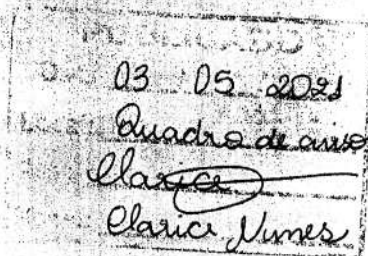 03 05 2021
Quadro de aviso
Clarice
Clarice Nunes